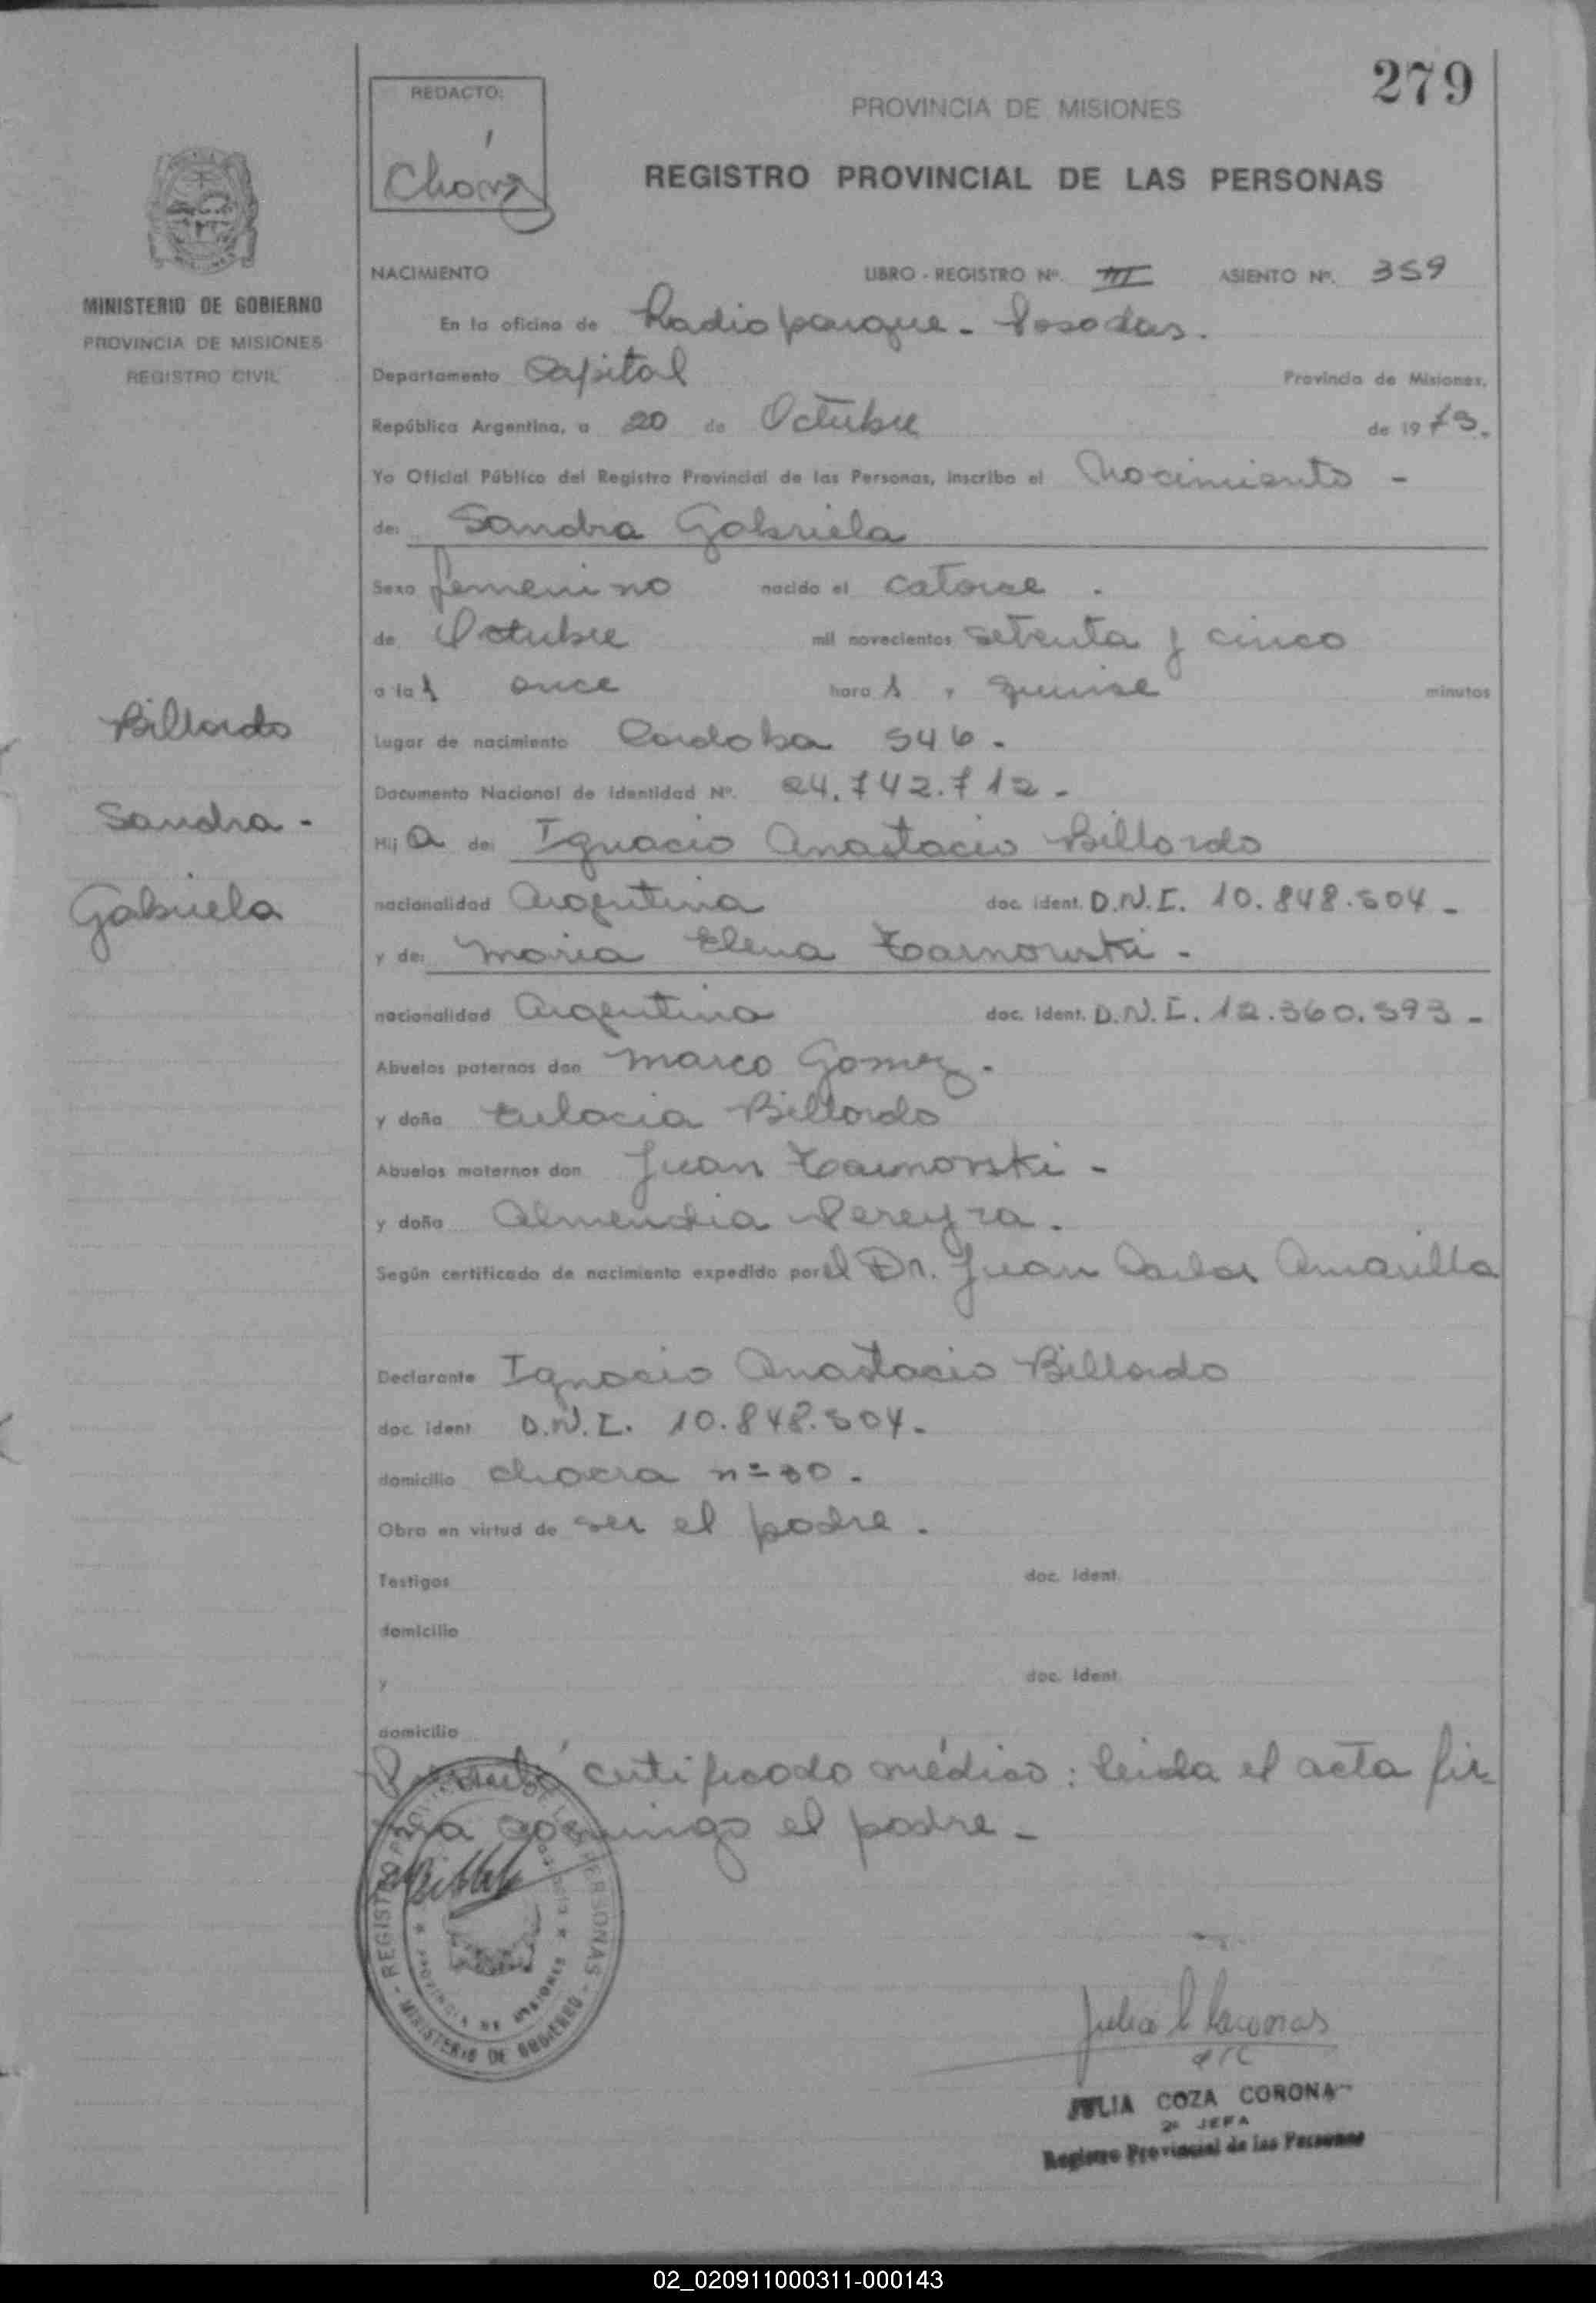 279
REDACTO:
PROVINCIA DE MISIONES
REGISTRO PROVINCIAL DE LAS PERSONAS
MINISTERIO DE GOBIERNO
PROVINCIA DE MISIONES
REGISTRO CIVIL
NACIMIENTO LIBRO - REGISTRO Nº. III ASIENTO Nº. 359
En la oficina de Radio parque - Posadas.
Departamento Capital Provincia de Misiones,
República Argentina, a 20 de Octubre de 1975.
Yo Oficial Público del Registro Provincial de las Personas, inscribo el Nacimiento -
de: Sandra Gabriela
Sexo femenino nacido el catorse .
de Octubre mil novecientos setenta y cinco
a las once horas y quinse minutos
Billordo
Sandra -
Gabriela
Lugar de nacimiento Cordoba 546 .
Documento Nacional de Identidad Nº. 24.742.712 -
Hija de: Ignacio Anastacio Billordo
nacionalidad Argentina doc. ident. D.N.I. 10.848.504 -
y de: Maria Elena Tarnowski -
nacionalidad Argentina doc. ident. D.N.I. 12.360.593 -
Abuelos paternos don Marco Gomez .
y doña Eulacia Billordo
Abuelos maternos don Juan Tarnorski -
y doña Almendia Pereyra .
Según certificado de nacimiento expedido por el Dr. Juan Carlos Amarilla
Declarante Ignacio Anastacio Billordo
doc. ident D.N.I. 10.848.504 -
domicilio chacra nº 30 .
Obra en virtud de ser el padre .
Testigos doc. ident.
domicilio
y doc. ident.
domicilio
certificado médico : leida el acta fir
ma conmigo el padre -
REGISTRO PROVINCIAL DE LAS PERSONAS - MINISTERIO DE GOBIERNO -
PROVINCIA DE MISIONES
JULIA COZA CORONA
2ª JEFA
Registro Provincial de las Personas
02_020911000311-000143